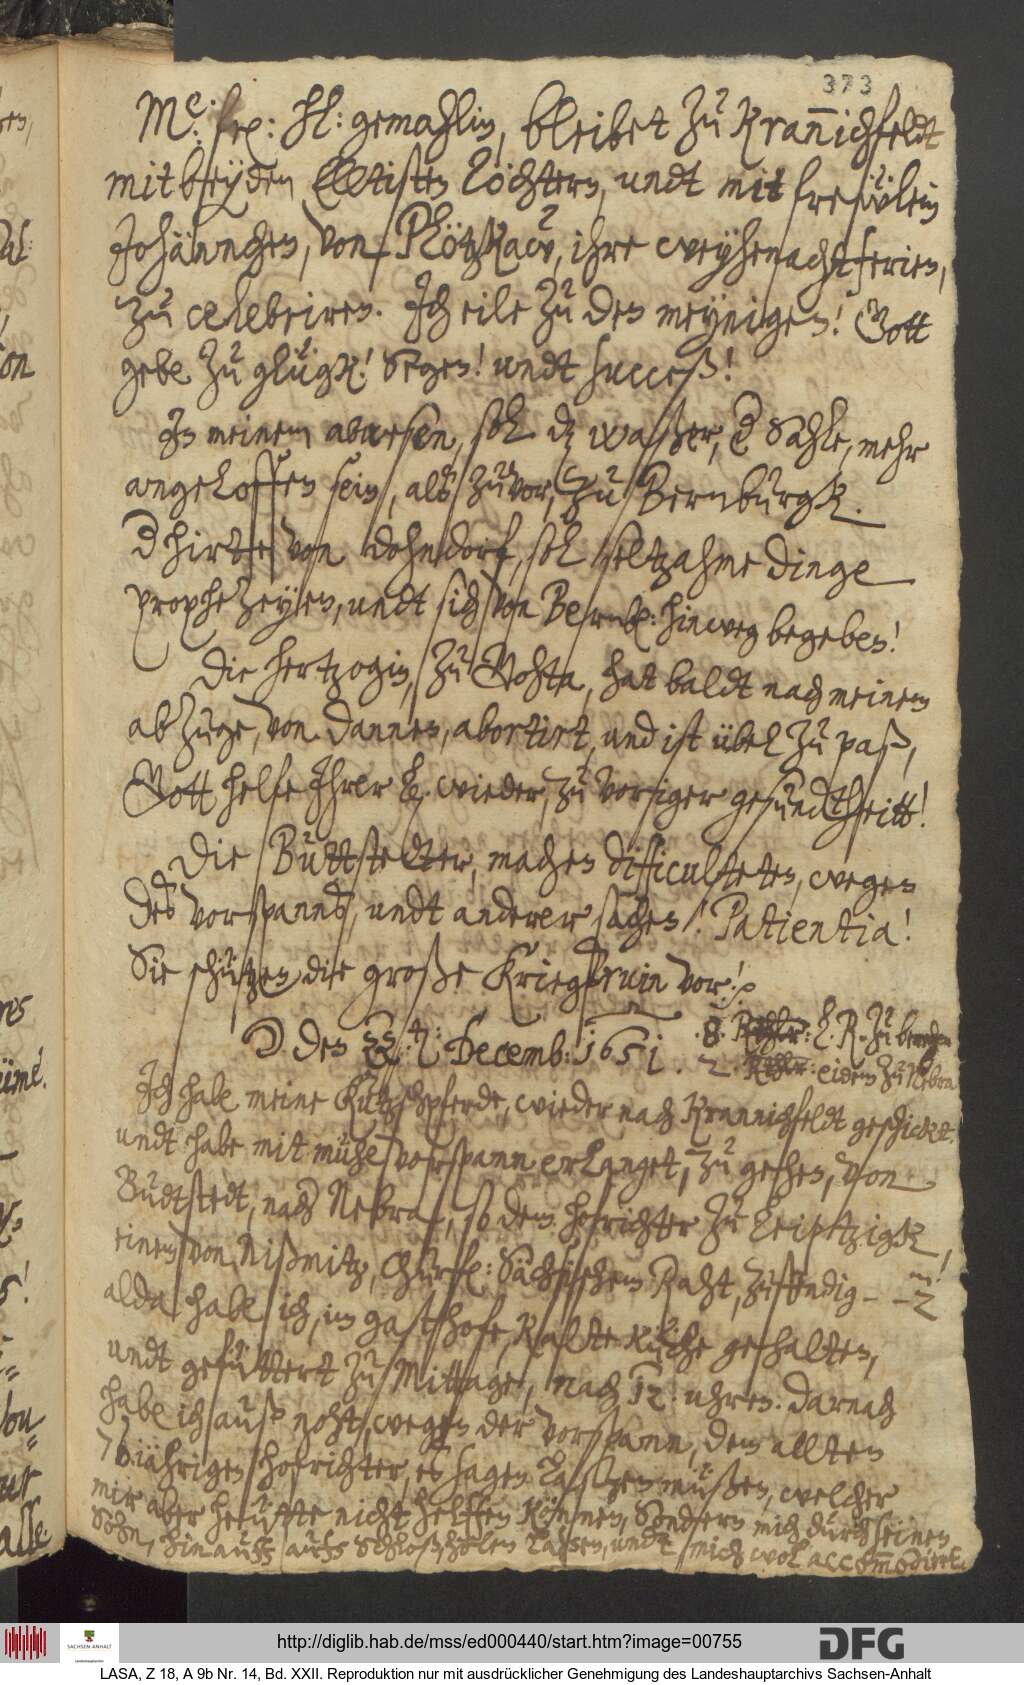 373
Me: fre: hl: gemahlin, bleibet zu Krannichfeldt
mit beyden Elltisten Töchtern, undt mit frewlein
Johännchen, von Plötzkaw, ihre weyhenacht ferien,
zu celebriren. Ich eile zu den meynigen! Gott
gebe zu glügk! Segen! undt succeß!
In meinem abwesen, sol dz waßer, d Sahle, mehr
angeloffen sein, alß zuvor, zu Bernburgk.
D hirte von dohndorf, sol seltzahme dinge
prophezeyen, undt sich von Bernb: hinweg begeben!
Die hertzogin, zu Gohta, hat baldt nach meinem
abzuge, von dannen, abortirt, und ist übel zu paß,
Gott helfe Ihrer L. wieder, zu voriger gesundtheitt!
Die Buttstedter, machen difficulteten, wegen
des vorspannß, undt anderer sachen! Patientia!
Sie schützen die große Kriegßruin vor!
den 22: Decemb: 1651.
Ich habe meine Kutzschpferde, wieder nach Krannichfeldt geschickt.
undt habe mit mühe vorspann erlanget, zu gehen, von
Budtstedt, nach Nebra, so dem hofrichter zu Leiptzigk,
einem von Nißmitz, Churfl: Sächsischem Raht, zustendig - - 2
alda habe ich, im gasthofe, Kalte Küche gehalten,
undt gefüttert zu Mittage, nach 12: uhren. Darnach
habe ich auß noht, wegen der vorspann, dem allten
76iährigen hofrichter, es sagen laßen müßen, welcher
mir aber heütte nicht helffen können, Sondern mich durch seinen
Sohn, hinauff aufs Schloß, holen laßen, undt mich wol accommodirt.
http://diglib.hab.de/mss/ed000440/start.htm?image=00755
DFG
SACHSEN-ANHALT
LASA, Z 18, A 9b Nr. 14, Bd. XXII. Reproduktion nur mit ausdrücklicher Genehmigung des Landeshauptarchivs Sachsen-Anhalt